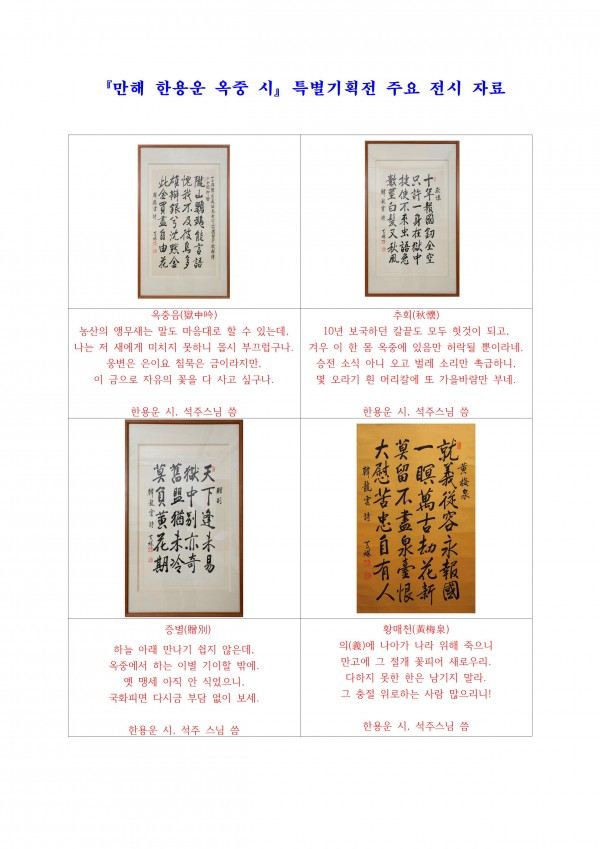 『만해 한용운 옥중 시』 특별기획전 주요 전시 자료
隴山鸚鵡能言語
愧我不及彼鳥多
雄辯銀兮沈默金
此金買盡自由花
韓龍雲詩
秋懷
十年報國劍全空
只許一身在獄中
捷使不來虫語急
數莖白髮又秋風
韓龍雲詩
옥중음(獄中吟)
농산의 앵무새는 말도 마음대로 할 수 있는데,
나는 저 새에게 미치지 못하니 몹시 부끄럽구나.
웅변은 은이요 침묵은 금이라지만,
이 금으로 자유의 꽃을 다 사고 싶구나.
한용운 시, 석주스님 씀
추회(秋懷)
10년 보국하던 칼끝도 모두 헛것이 되고,
겨우 이 한 몸 옥중에 있음만 허락될 뿐이라네.
승전 소식 아니 오고 벌레 소리만 촉급하니,
몇 오라기 흰 머리칼에 또 가을바람만 부네.
한용운 시, 석주스님 씀
贈別
天下逢未易
獄中別亦奇
舊盟猶未冷
莫負黃花期
韓龍雲詩
黃梅泉
就義從容永報國
一暝萬古劫花新
莫留不盡泉臺恨
大慰苦忠自有人
韓龍雲詩
증별(贈別)
하늘 아래 만나기 쉽지 않은데,
옥중에서 하는 이별 기이할 밖에.
옛 맹세 아직 안 식었으니,
국화피면 다시금 부담 없이 보세.
한용운 시, 석주 스님 씀
황매천(黃梅泉)
의(義)에 나아가 나라 위해 죽으니
만고에 그 절개 꽃피어 새로우리.
다하지 못한 한은 남기지 말라.
그 충절 위로하는 사람 많으리니!
한용운 시, 석주스님 씀